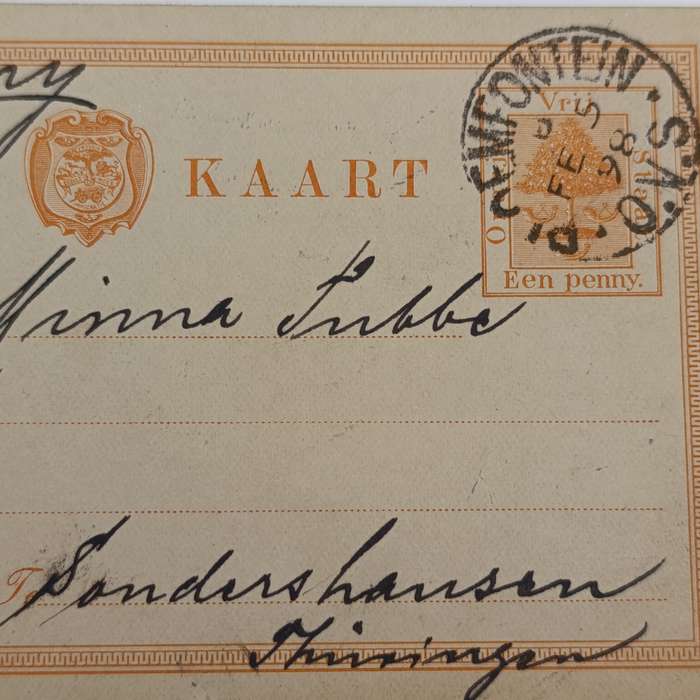 ny
KAART
BLOEMFONTEIN · O.V.S.
C
FE 5
98
Vrij
Een penny.
Minna Lubbe
T
Sondershausen
Thüringen